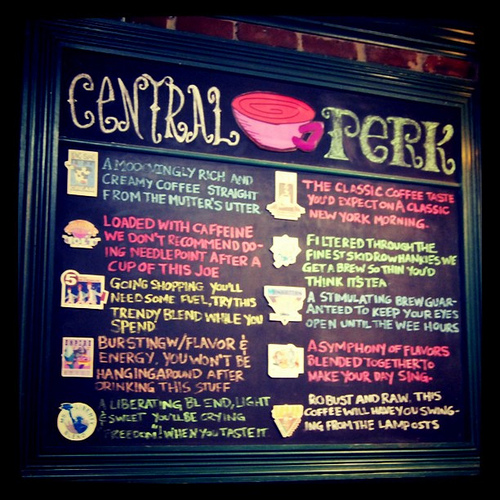 CENTRAL PERK
A MOOOVINGLY RICH AND
CREAMY COFFEE STRAIGHT
FROM THE MUTTER'S UTTER
LOADED WITH CAFFEINE
WE DON'T RECOMMEND DO-
ING NEEDLEPOINT AFTER A
CUP OF THIS JOE
5
GOING SHOPPING YOU'LL
NEED SOME FUEL, TRY THIS
TRENDY BLEND WHILE YOU
SPEND
BURSTING W/ FLAVOR &
ENERGY. YOU WON'T BE
HANGING AROUND AFTER
DRINKING THIS STUFF
A LIBERATING BLEND, LIGHT
& SWEET YOU'LL BE CRYING
"FREEDOM!" WHEN YOU TASTE IT
THE CLASSIC COFFEE TASTE
YOU'D EXPECT ON A CLASSIC
NEW YORK MORNING.
FILTERED THROUGH THE
FINEST SKID ROW HANKIES WE
GET A BREW SO THIN YOU'D
THINK IT'S TEA
A STIMULATING BREW GUAR-
ANTEED TO KEEP YOUR EYES
OPEN UNTIL THE WEE HOURS
A SYMPHONY OF FLAVORS
BLENDED TOGETHER TO
MAKE YOUR DAY SING-
ROBUST AND RAW. THIS
COFFEE WILL HAVE YOU SWING-
ING FROM THE LAMPOSTS